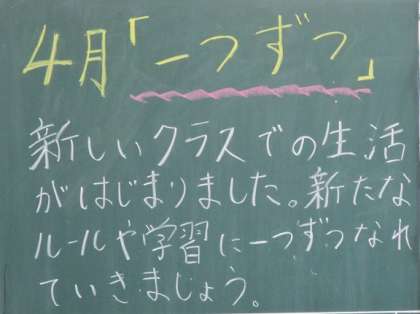 4月「一つずつ」
新しいクラスでの生活
がはじまりました。新たな
ルールや学習に一つずつなれ
ていきましょう。